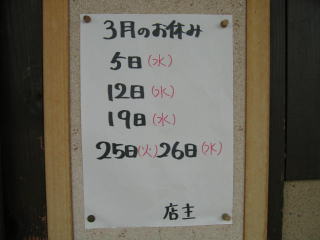 3月のお休み
5日(水)
12日(水)
19日(水)
25日(火)26日(水)
店主